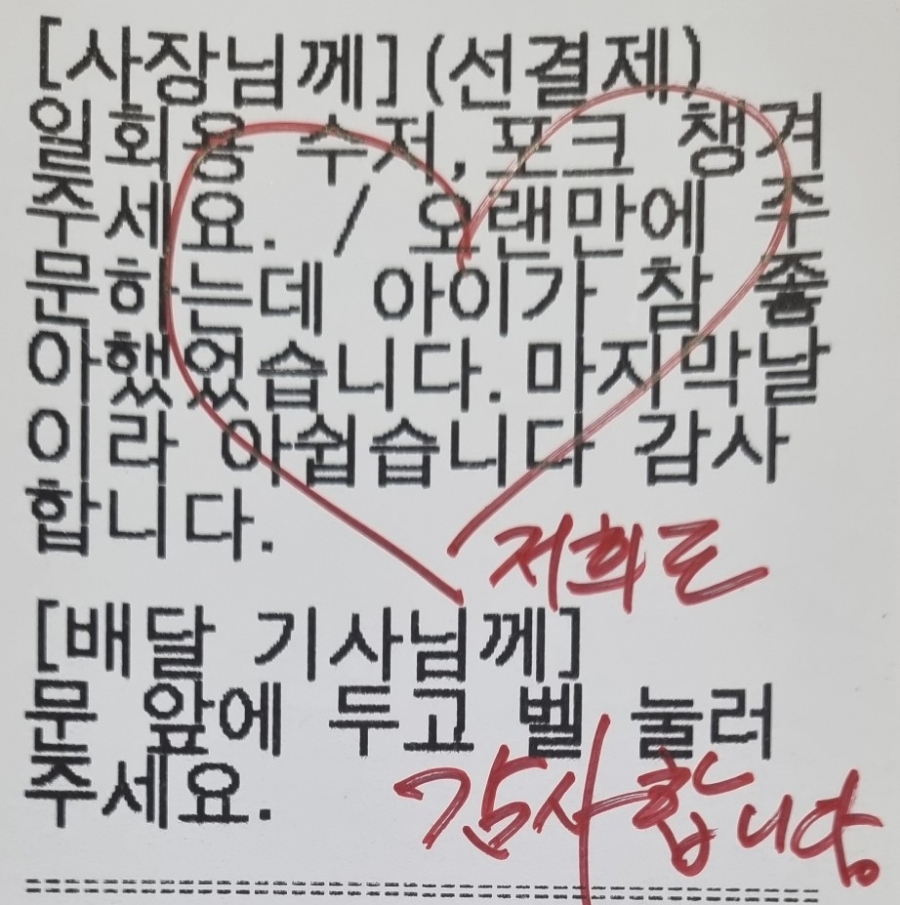 [사장님께] (선결제)
일회용 수저, 포크 챙겨
주세요. / 오랜만에 주
문하는데 아이가 참 좋
아했었습니다. 마지막날
이라 아쉽습니다 감사
합니다.
저희도
[배달 기사님께]
문 앞에 두고 벨 눌러
주세요.
감사합니당